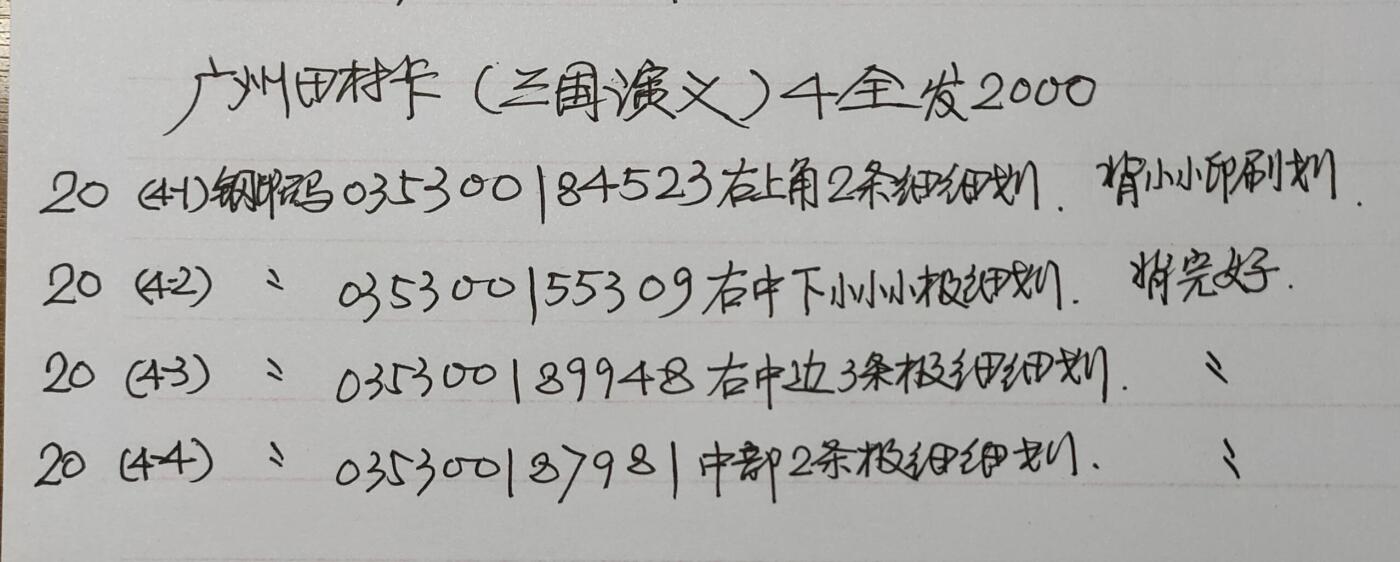 广州田村卡(三国演义)4全发2000
20 (4-1)钢印码035300184523右上角2条细细划. 背小小印刷划.
20 (4-2) 〃 035300155309右中下小小小极细划. 背完好.
20 (4-3) 〃 035300189948右中边3条极细细划. 〃
20 (4-4) 〃 035300187981中部2条极细细划. 〃